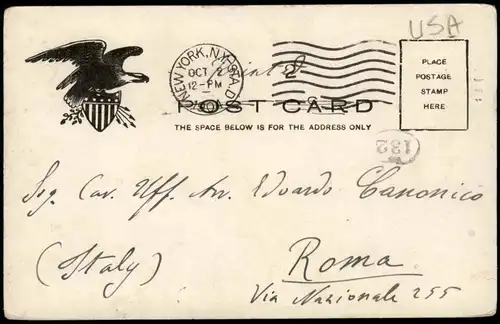 USA
NEW YORK, N.Y. STA. D.
OCT 2
12-PM
2
PLACE
POSTAGE
STAMP
HERE
POST CARD
THE SPACE BELOW IS FOR THE ADDRESS ONLY
132
Sig. Cav. Uff. Avv. Edoardo Canonico
(Italy)
Roma
Via Nazionale 255